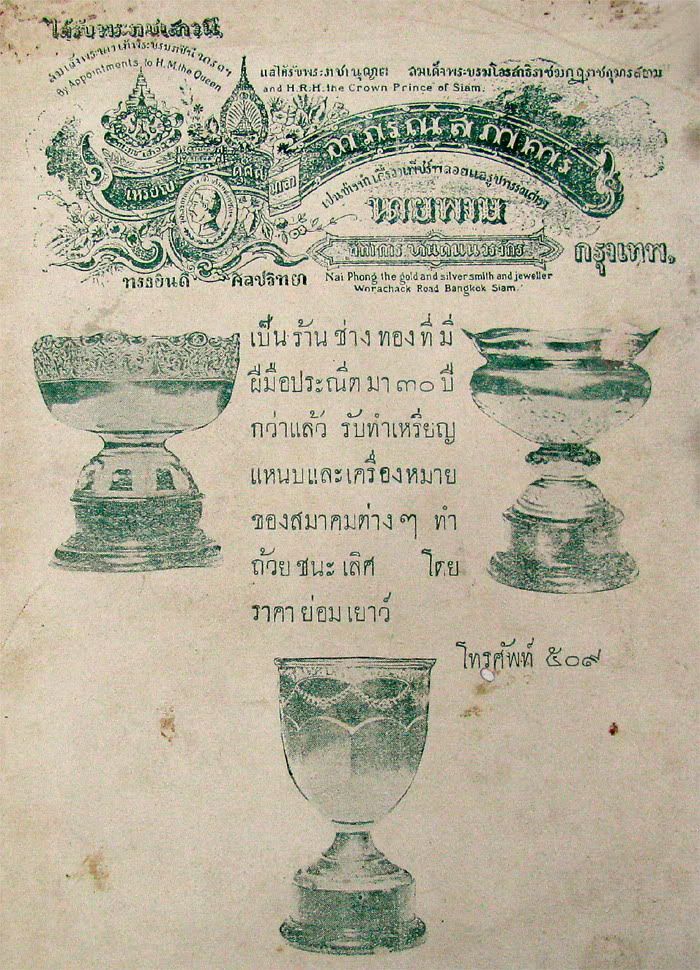 ได้รับพระราชเสาวนี
สมเด็จพระนางเจ้าพระบรมราชินีนารถฯ
By Appointments to H.M. the Queen
แลได้รับพระราชานุญาต สมเด็จพระบรมโอรสาธิราชมกุฎราชกุมารสยาม
and H.R.H. the Crown Prince of Siam.
อาภรณ์สภาคาร
เหรียญ ดุสิต มาลา
นายพาย
กรุงเทพฯ
ทรงยินดี ศิลปวิทยา
Nai Phong the gold and silver smith and jeweller
Worachack Road Bangkok Siam.
เป็น ร้าน ช่าง ทอง ที่ มี
ฝีมือประณีต มา ๓๐ ปี
กว่าแล้ว รับทำเหรียญ
แหนบและเครื่องหมาย
ของสมาคมต่าง ๆ ทำ
ถ้วย ชนะ เลิศ โดย
ราคา ย่อม เยาว์
โทรศัพท์ ๕๐๙